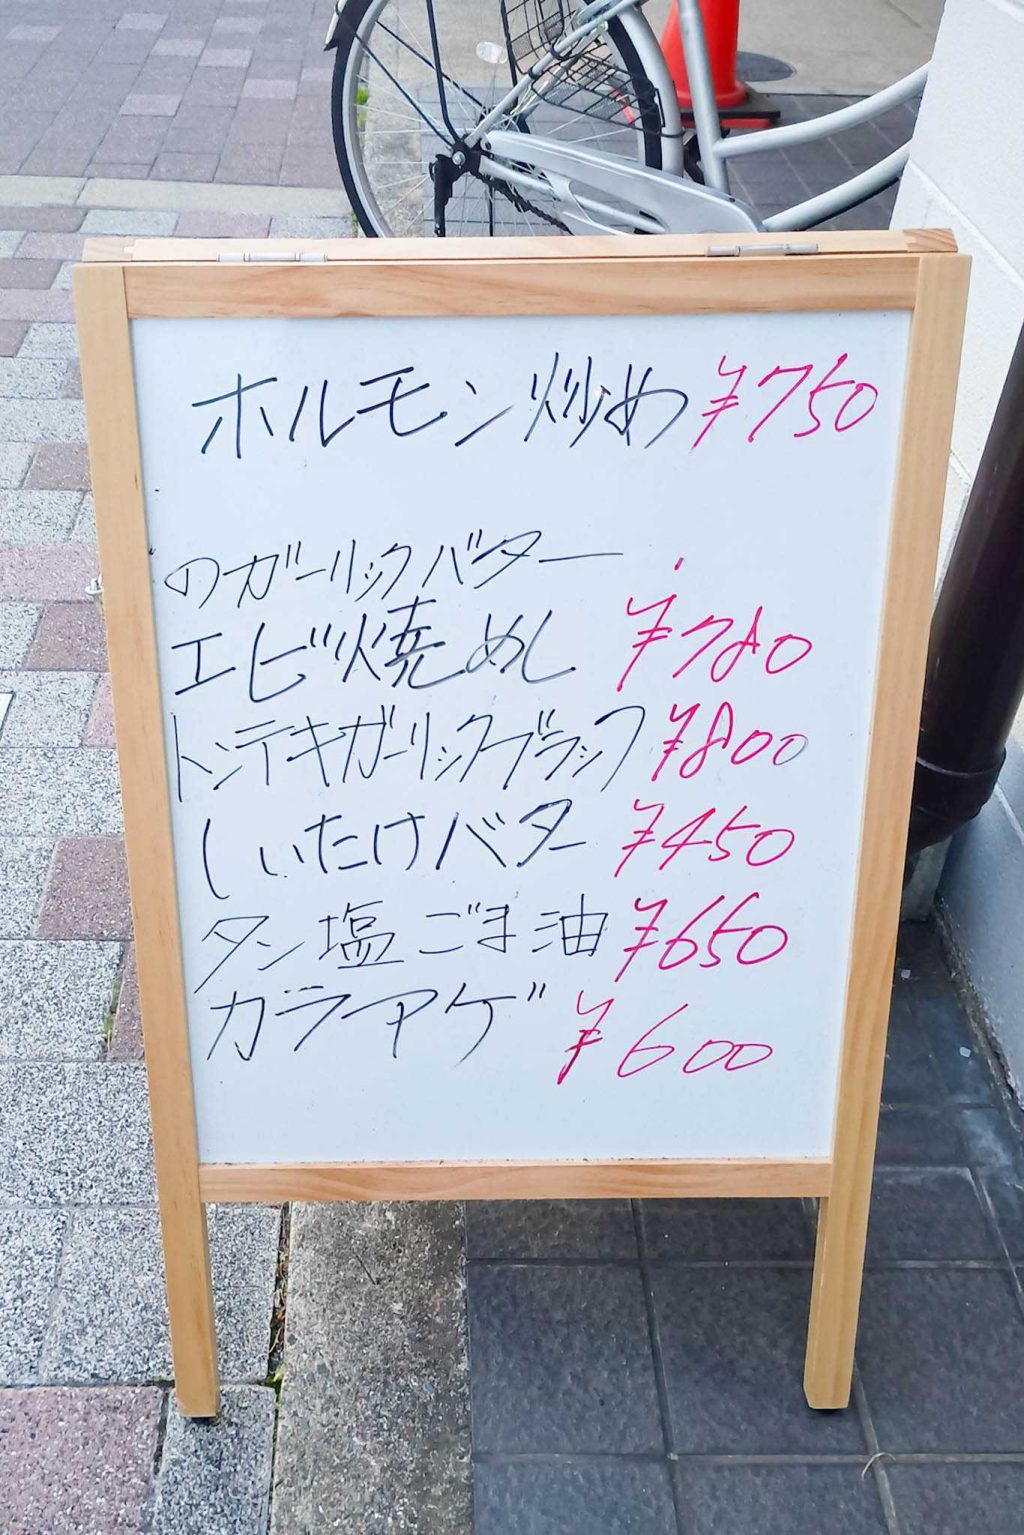 ホルモン炒め ¥750
のガーリックバター
エビ焼めし ¥780
トンテキガーリックブラック ¥800
しいたけバター ¥450
タン塩ごま油 ¥650
カラアゲ ¥600